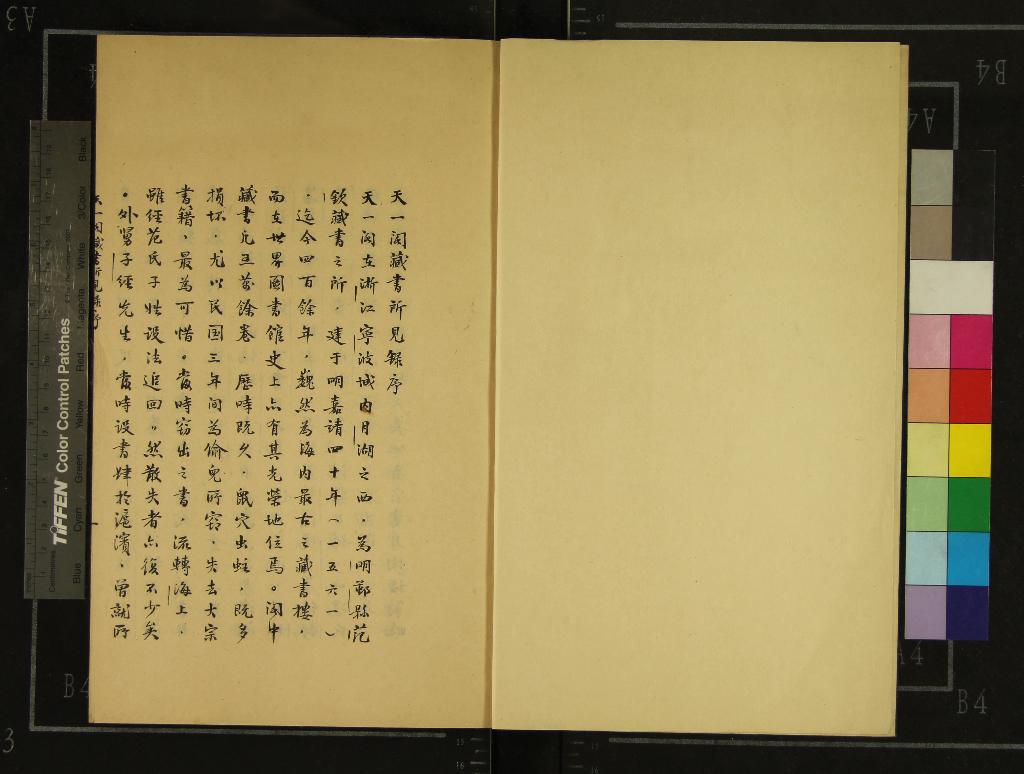 天一閣藏書所見錄序
天一閣在浙江寧波城內月湖之西．為明鄞縣范
欽藏書之所．建于明嘉靖四十年（一五六一）
．迄今四百餘年．巍然為海內最古之藏書樓．
而在世界圖書館史上亦有其光榮地位焉。閣中
藏書凡五萬餘卷．歷時既久．鼠穴出蛀．既多
損坏．尤以民国三年间為偷兒所竊．失去大宗
書籍．最為可惜。當時窃出之書．流轉海上．
雖經范氏子姓設法追回。然散失者亦復不少矣
。外舅子經先生．當時設書肆於滬濱．曾就所
天一閣藏書所見錄序
TIFFEN Color Control Patches
Blue Cyan Green Yellow Red Magenta White 3/Color Black
Centimetres
A3
B4
A4
A4
B4
B4
3